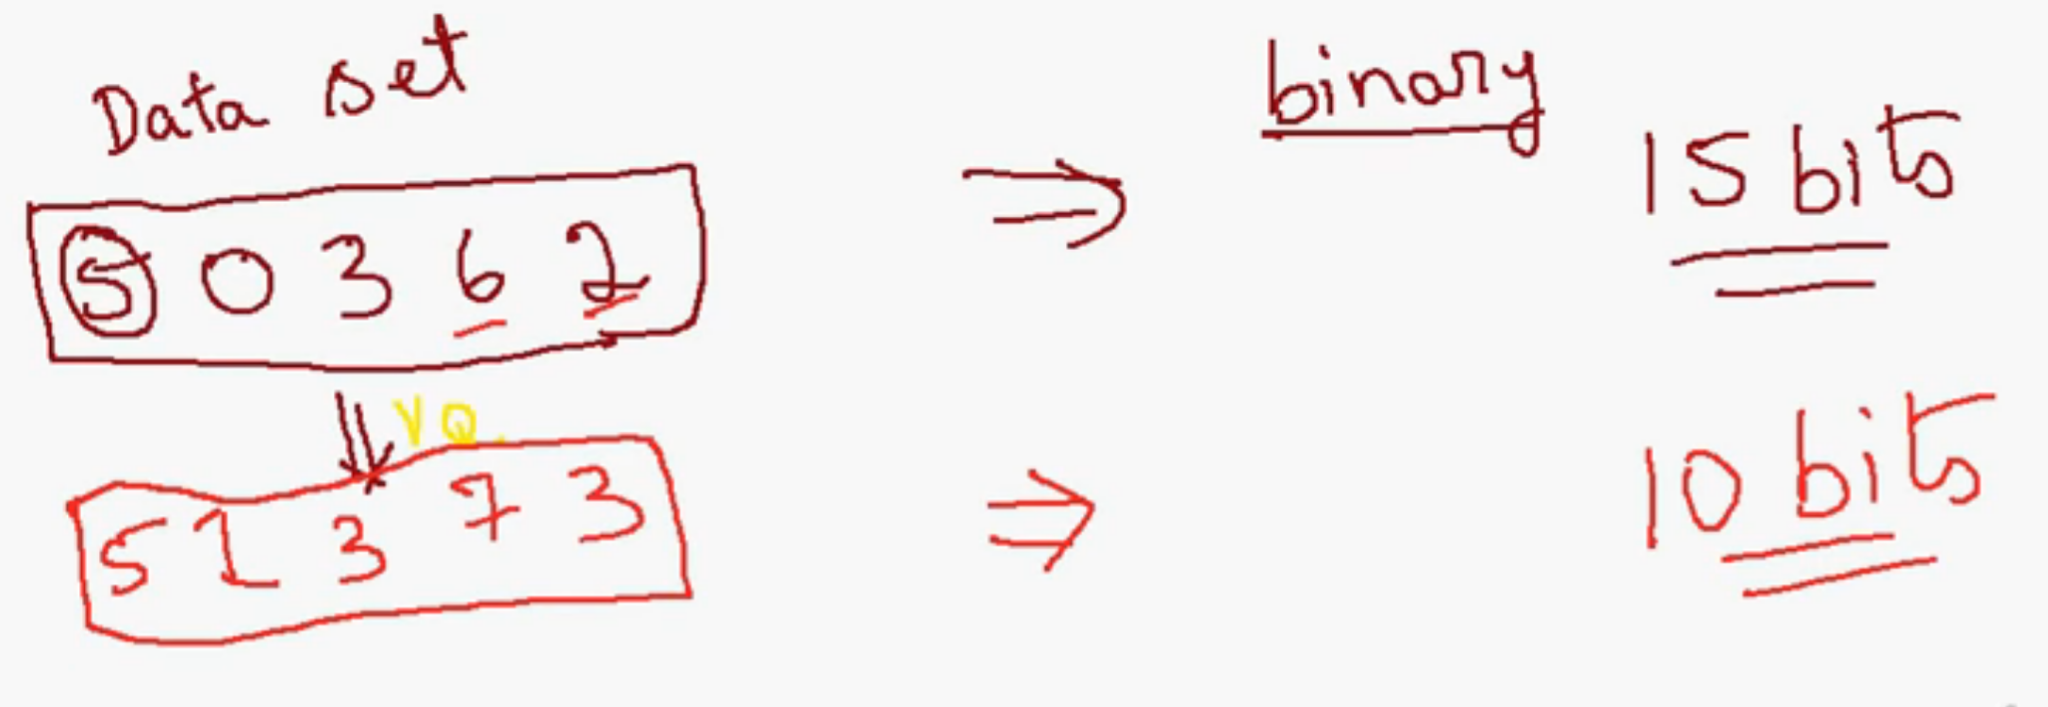 Data set
binary
5 0 3 6 2
15 bits
VQ
5 1 3 7 3
10 bits